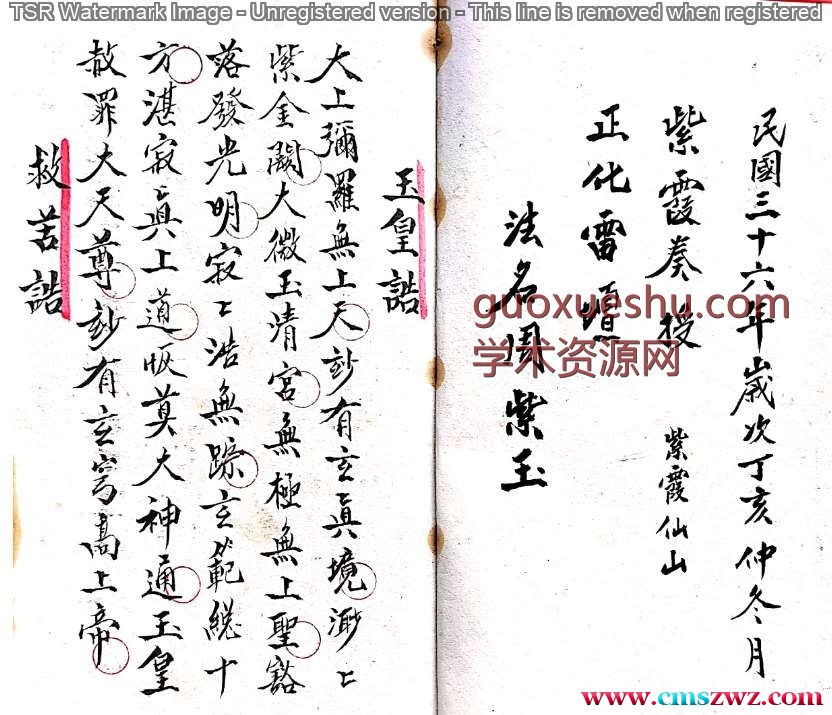 TSR Watermark Image - Unregistered version - This line is removed when registered
民國三十六年歲次丁亥仲冬月
紫霞奏授 紫霞仙山
正化雷壇
法名周紫玉
玉皇誥
大上彌羅無上天玅有玄眞境渺〻
紫金闕大微玉清宮無極無上聖豁
落發光明寂〻浩無踪玄範総十
方湛寂〻眞上道恢莫大神通玉皇
赦罪大天尊玅有玄穹高上帝
救苦誥
guoxueshu.com
学术资源网
www.cmszwz.com